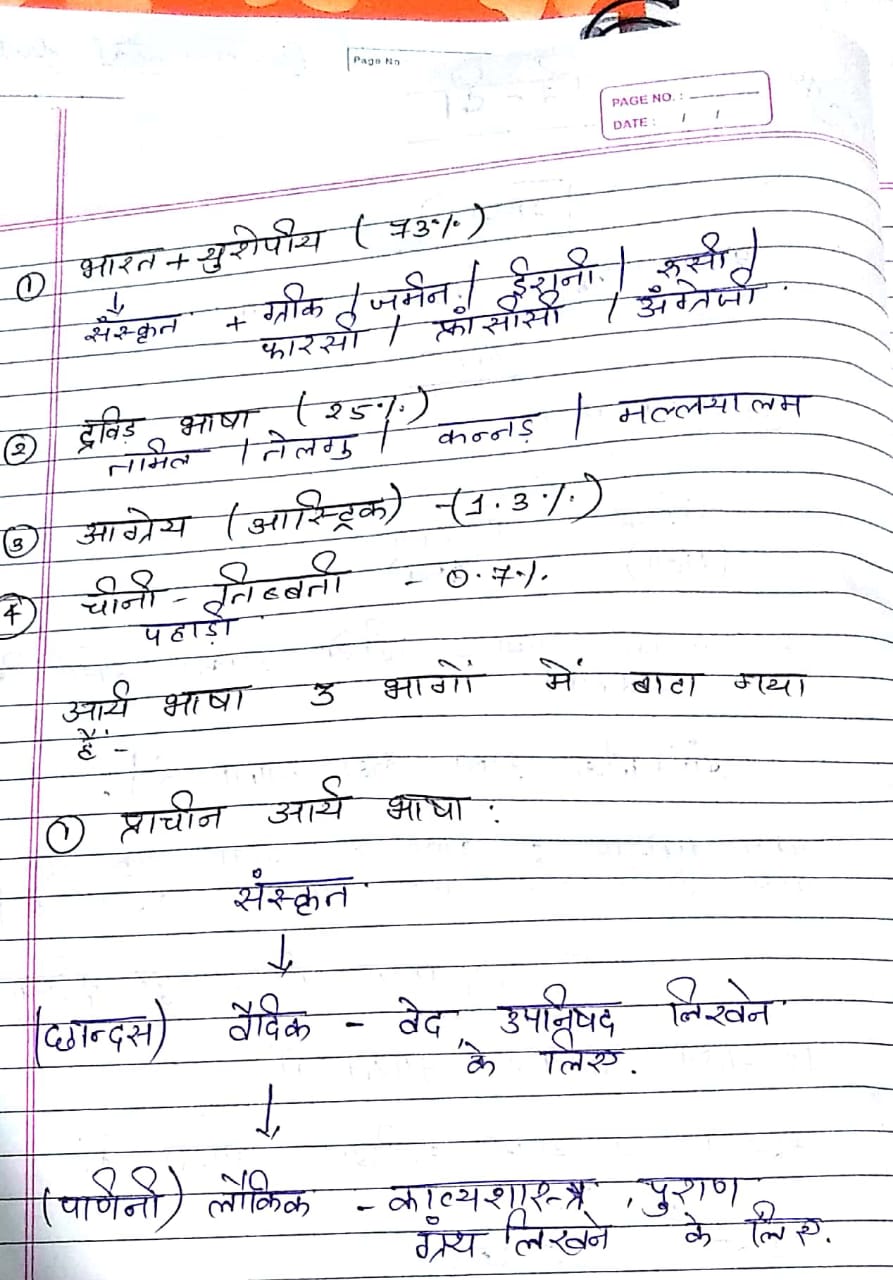 Page No
PAGE NO. :
DATE : / /
① भारत + युरोपीय ( 73% )
↓
संस्कृत + ग्रीक / जर्मन / ईरानी / रुसी /
फारसी / फ्रांसीसी / अंग्रेजी
② द्रविड़ भाषा ( 25% )
तामिल / तेलगु / कन्नड़ / मल्लयालम
③ आग्नेय (आस्ट्रिक) - (1.3%)
4 चीनी - तिब्बती - 0.7%
पहाड़ी
आर्य भाषा 3 भागों में बाटा गया
हैं -
① प्राचीन आर्य भाषा :
संस्कृत
↓
(छान्दस) वैदिक - वेद, उपनिषद लिखने
के लिए.
↓
(पाणिनी) लौकिक - काव्यशास्त्र, पुराण
ग्रंथ लिखने के लिए.